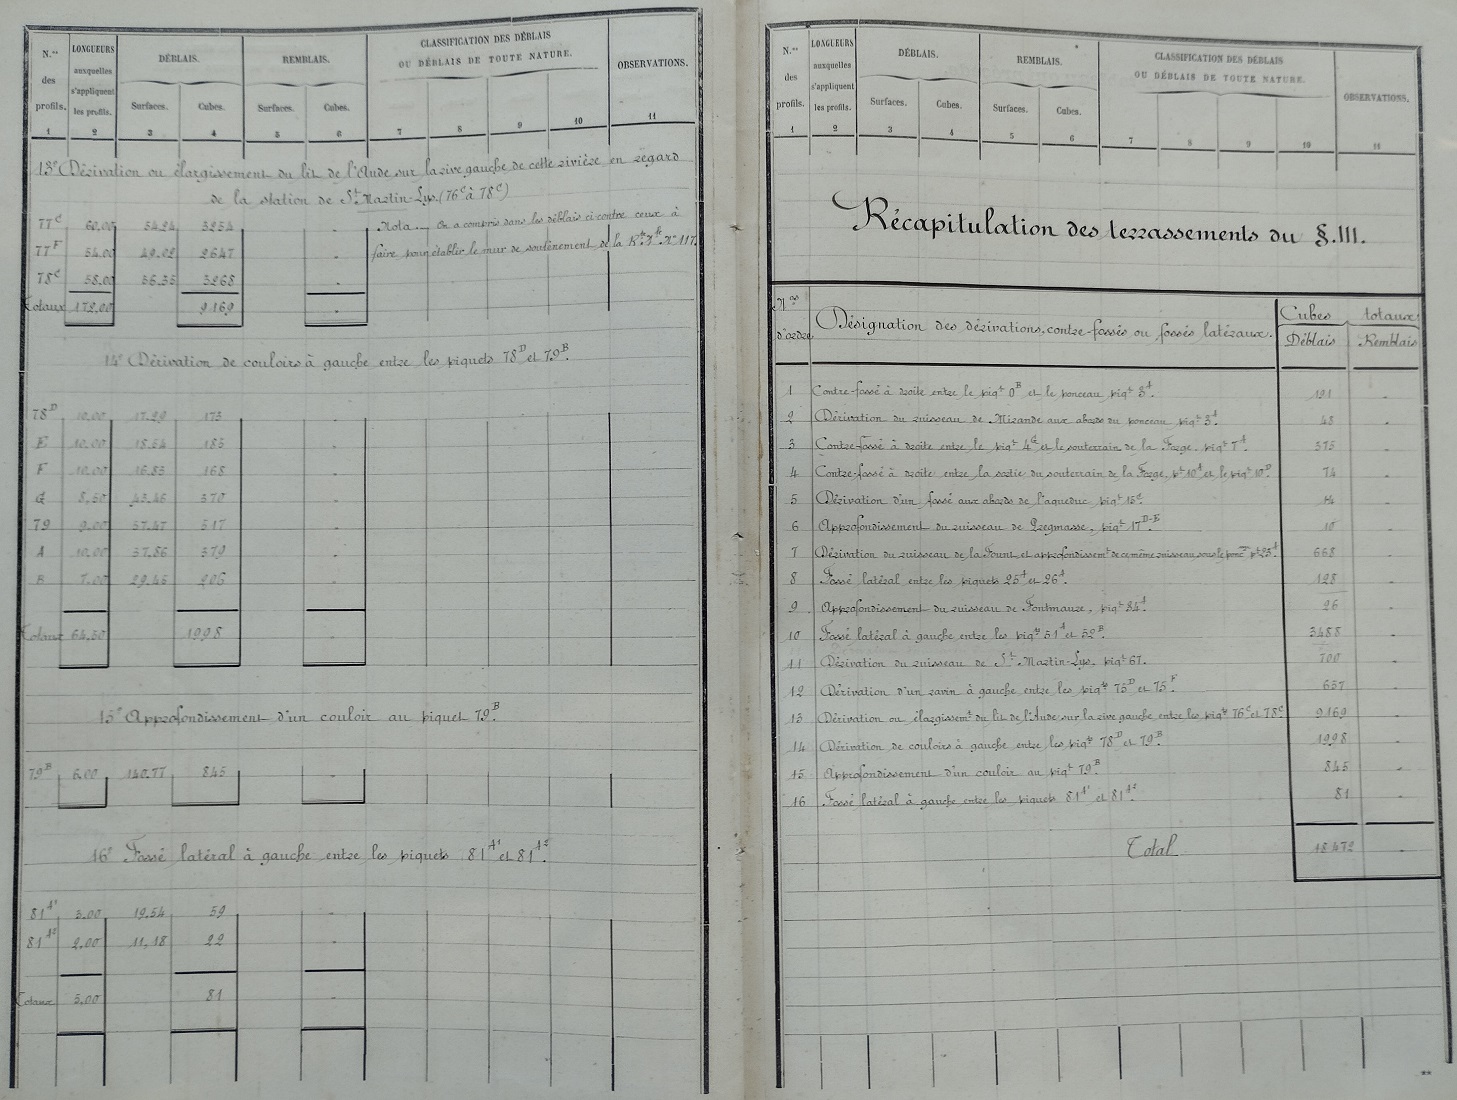 N.os des profils.
LONGUEURS auxquelles s'appliquent les profils.
DÉBLAIS.
REMBLAIS.
CLASSIFICATION DES DÉBLAIS
OU DÉBLAIS DE TOUTE NATURE.
OBSERVATIONS.
Surfaces. Cubes. Surfaces. Cubes.
1 2 3 4 5 6 7 8 9 10 11
13° Dérivation ou élargissement du lit de l'Aude sur la rive gauche de cette rivière en regard
de la station de St. Martin-Lys. (76C à 78C)
77C 60.00 54.24 3254 "
Nota. _ On a compris dans les déblais ci-contre ceux à
77F 54.00 49.02 2647 "
faire pour établir le mur de soutènement de la Rte Nle N° 117.
78C 58.00 56.35 3268 "
Totaux 172.00 9169 "
14° Dérivation de couloirs à gauche entre les piquets 78D et 79B.
78D 10.00 17.29 173 "
E 10.00 18.54 185 "
F 10.00 16.83 168 "
G 8.50 43.46 370 "
79 9.00 57.47 517 "
A 10.00 37.86 379 "
B 7.00 29.45 206 "
Totaux 64.50 1998 "
15° Approfondissement d'un couloir au piquet 79B.
79B 6.00 140.77 845 "
16° Fossé latéral à gauche entre les piquets 81A1 et 81A2.
81A1 3.00 19.54 59 "
81A2 2.00 11.18 22 "
Totaux 5.00 81 "
N.os des profils.
LONGUEURS auxquelles s'appliquent les profils.
DÉBLAIS.
REMBLAIS.
CLASSIFICATION DES DÉBLAIS
OU DÉBLAIS DE TOUTE NATURE.
OBSERVATIONS.
Surfaces. Cubes. Surfaces. Cubes.
1 2 3 4 5 6 7 8 9 10 11
Récapitulation des terrassements du §. III.
Nos d'ordre
Désignation des dérivations, contre-fossés ou fossés latéraux.
Cubes totaux
Déblais Remblais
1 Contre-fossé à droite entre le piqt 0B et le ponceau, piqt 3A 191 "
2 Dérivation du ruisseau de Mirande aux abords du ponceau, piqt 3A. 48 "
3 Contre-fossé à droite entre le piqt 4G et le souterrain de la Forge, piqt 7A 375 "
4 Contre-fossé à droite entre la sortie du souterrain de la Forge, pt 10A et le piqt 10D. 74 "
5 Dérivation d'un fossé aux abords de l'aqueduc piqt 15C. 14 "
6 Approfondissement du ruisseau de piqt 17D-E 10 "
7 Dérivation du ruisseau de la Fount et approfondissemt de ce même ruisseau sous le ponc pt 25A 668 "
8 Fossé latéral entre les piquets 25A et 26A. 128 "
9 Approfondissement du ruisseau de Fontmaure, piqt 34A. 26 "
10 Fossé latéral à gauche entre les piqts 51A et 52B. 3488 "
11 Dérivation du ruisseau de St Martin-Lys. piqt 67. 700 "
12 Dérivation d'un ravin à gauche entre les piqts 75D et 75F 657 "
13 Dérivation ou élargissemt du lit de l'Aude sur la rive gauche entre les piqts 76C et 78C 9169 "
14 Dérivation de couloirs à gauche entre les piqts 78D et 79B. 1998 "
15 Approfondissement d'un couloir au piqt 79B. 845 "
16 Fossé latéral à gauche entre les piquets 81A1 et 81A2. 81 "
Total 18472 "